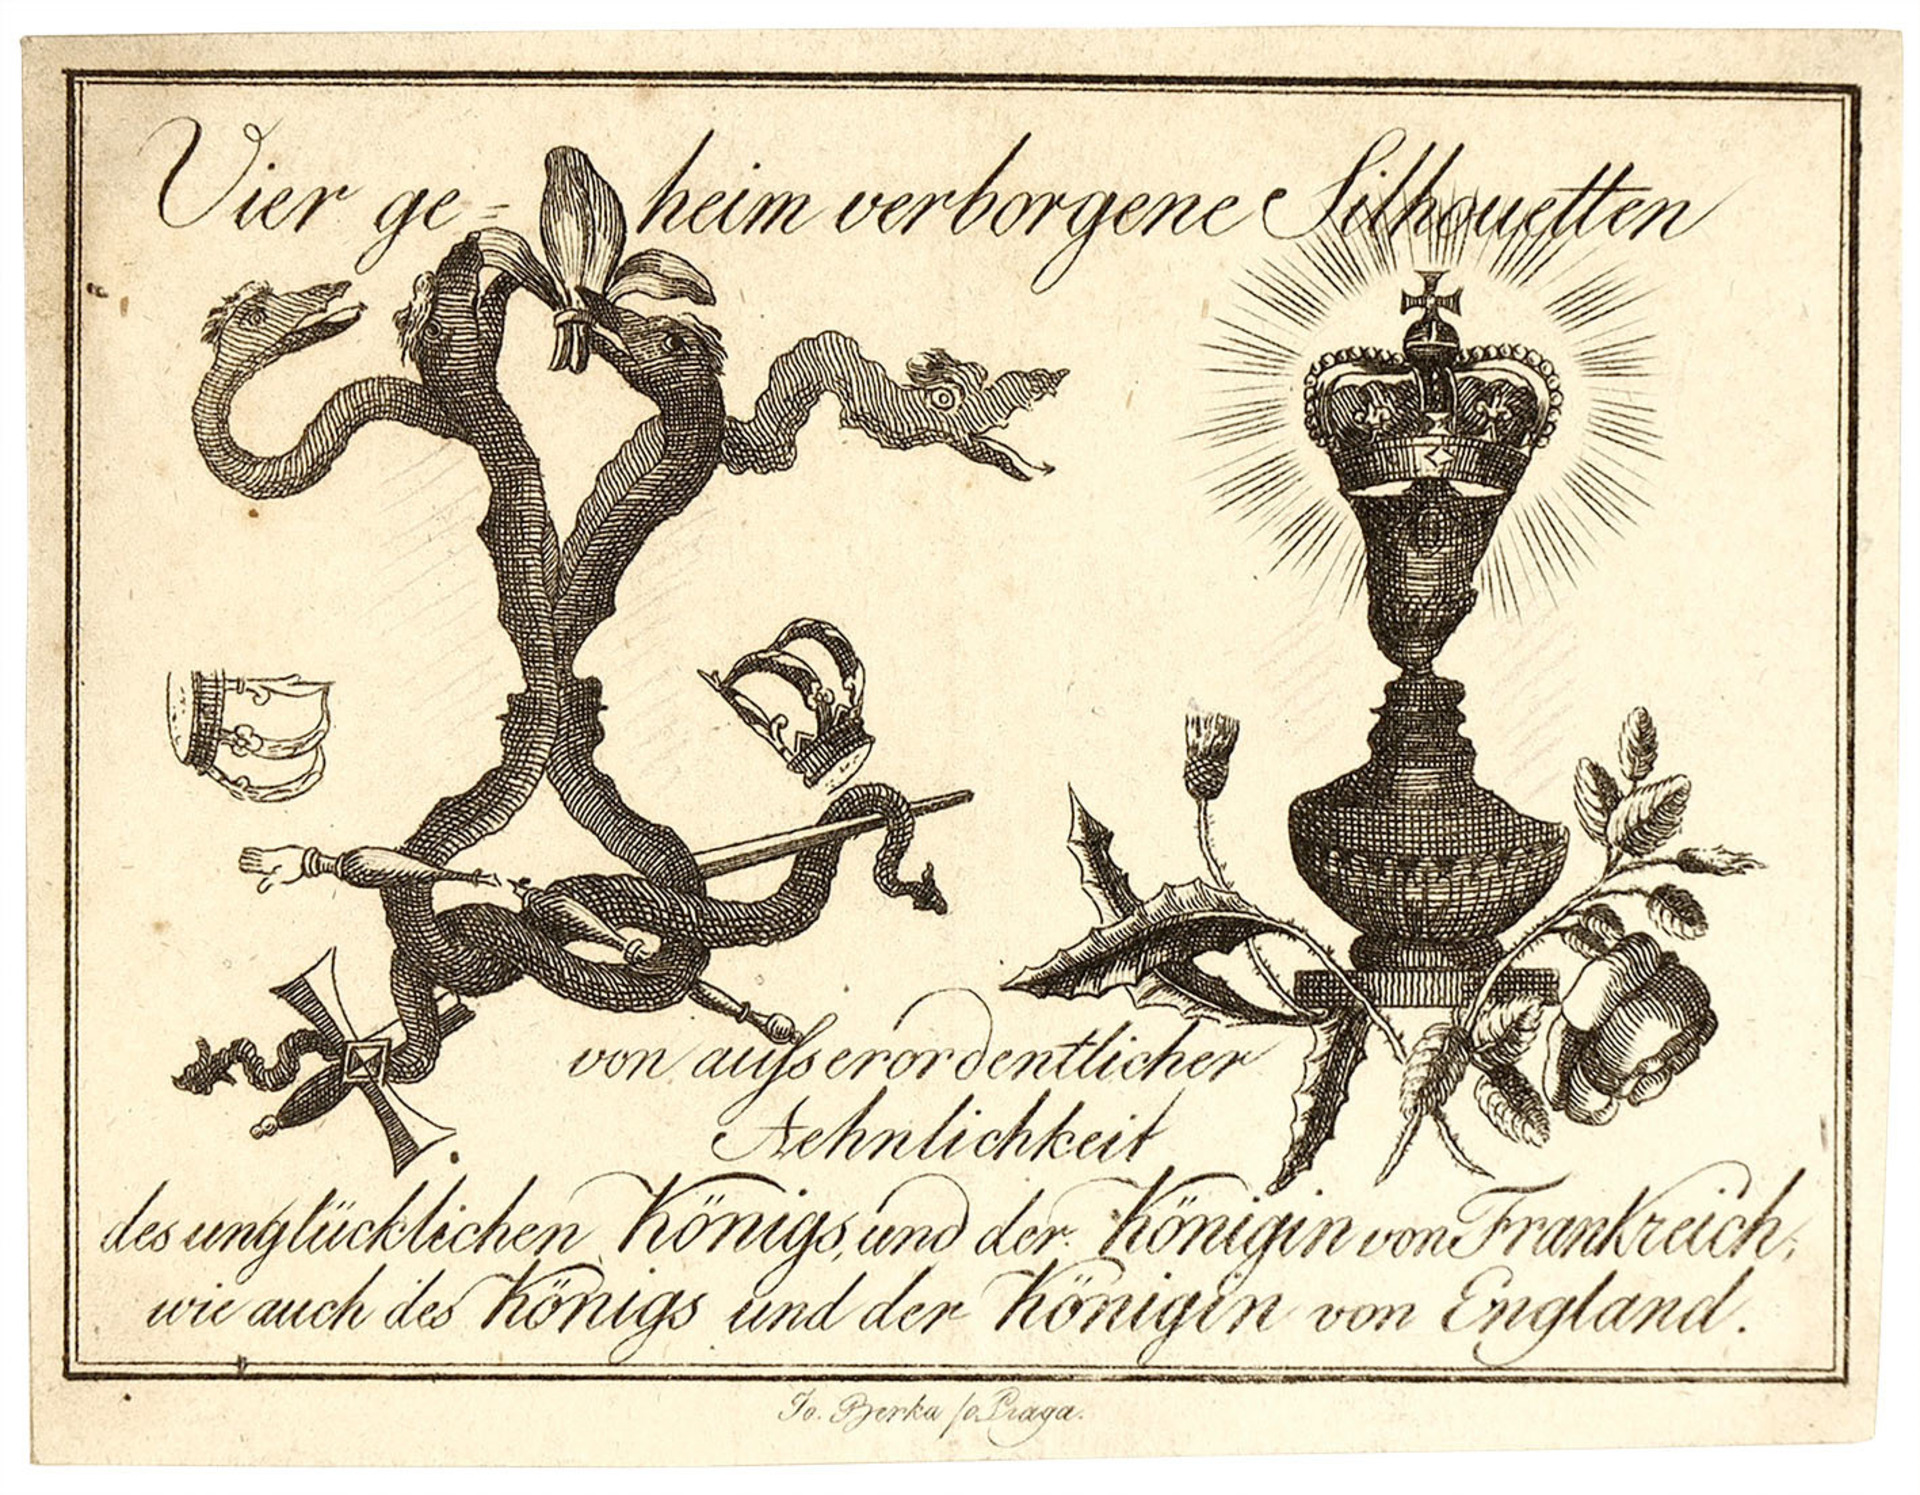 Vier ge= heim verborgene Silhouetten
von ausserordentlicher
Aehnlichkeit
des unglücklichen Königs, und der Königin von Frankreich,
wie auch des Königs und der Königin von England.
Jo. Berka sc. Praga.